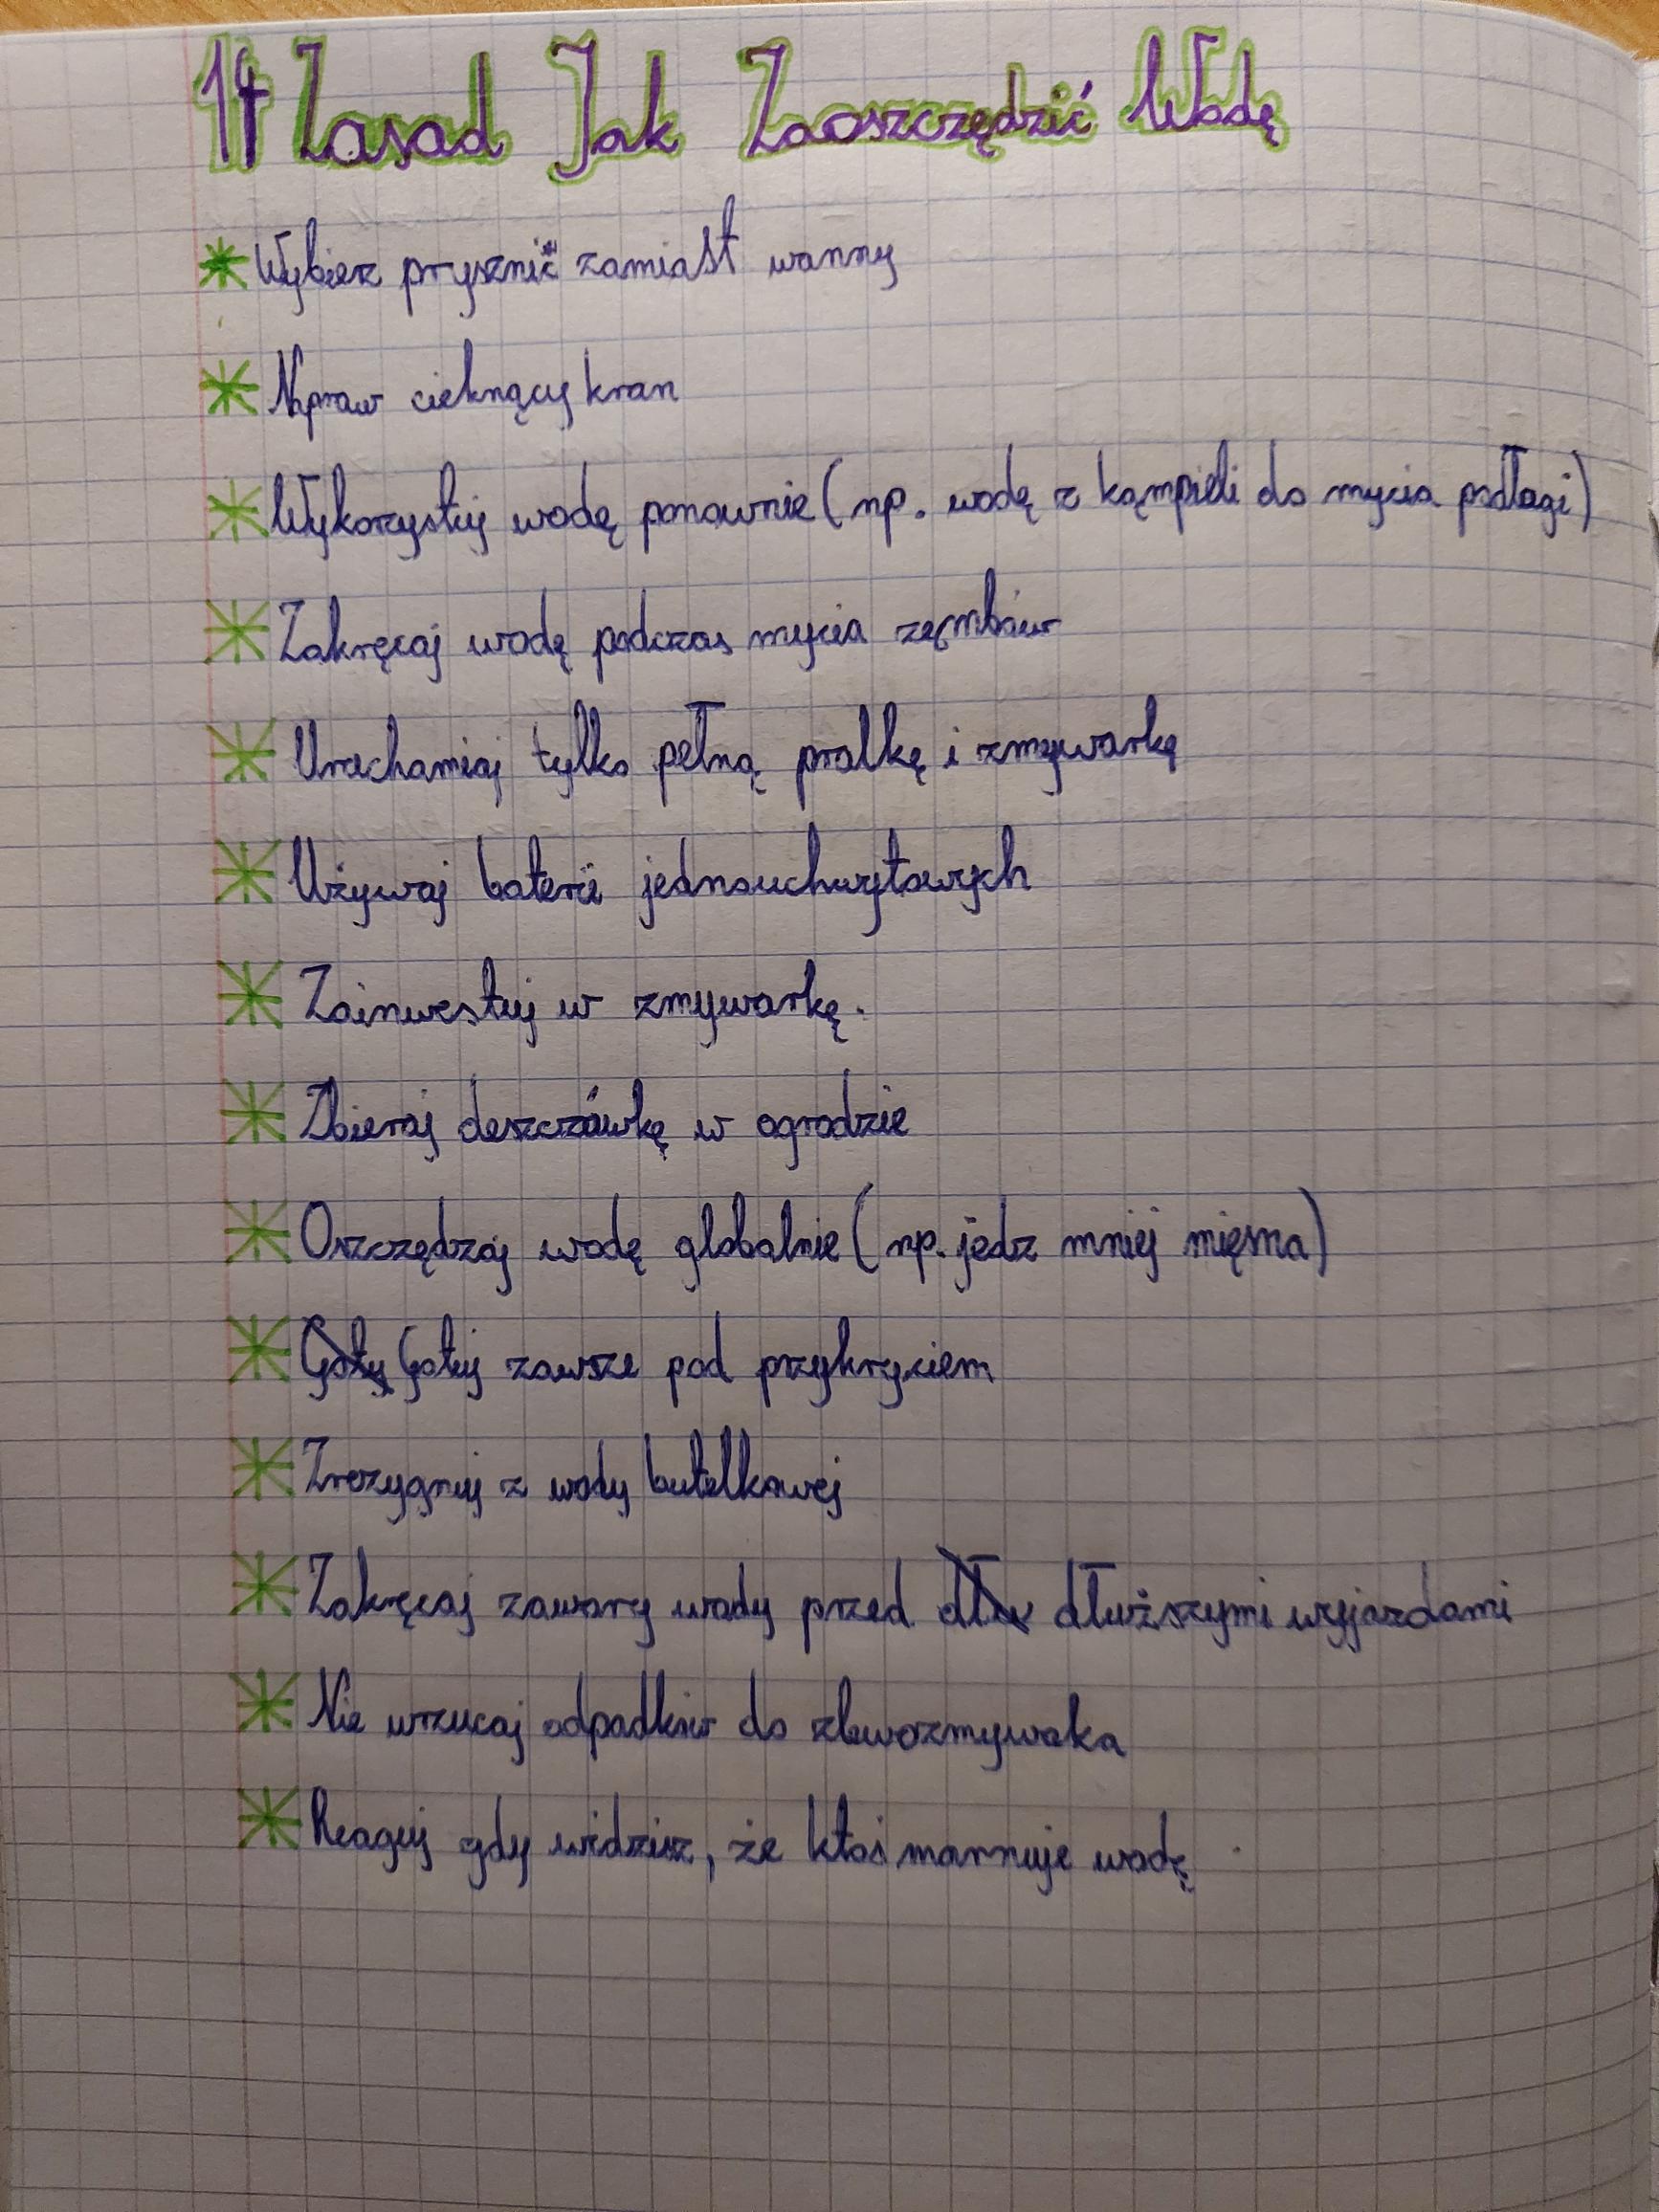 14 Zasad Jak Zaoszczędzić Wodę
Wybierz prysznic zamiast wanny
Napraw cieknący kran
Wykorzystuj wodę ponownie (np. wodę z kąmpieli do mycia podłagi)
Zakręcaj wodę podczas mycia zęmbów
Uruchamiaj tylko pełną pralkę i zmywarkę
Używaj baterii jednouchwytowych
Zainwestuj w zmywarkę.
Zbieraj deszczówkę w ogrodzie
Oszczędzaj wodę globalnie (np. jedz mniej mięsna)
Gotuj zawsze pod przykryciem
Zrezygnuj z wody butelkowej
Zakręcaj zawory wody przed dłuższymi wyjazdami
Nie wrzucaj odpadków do zlewozmywaka
Reaguj gdy widzisz, że ktoś marnuje wodę